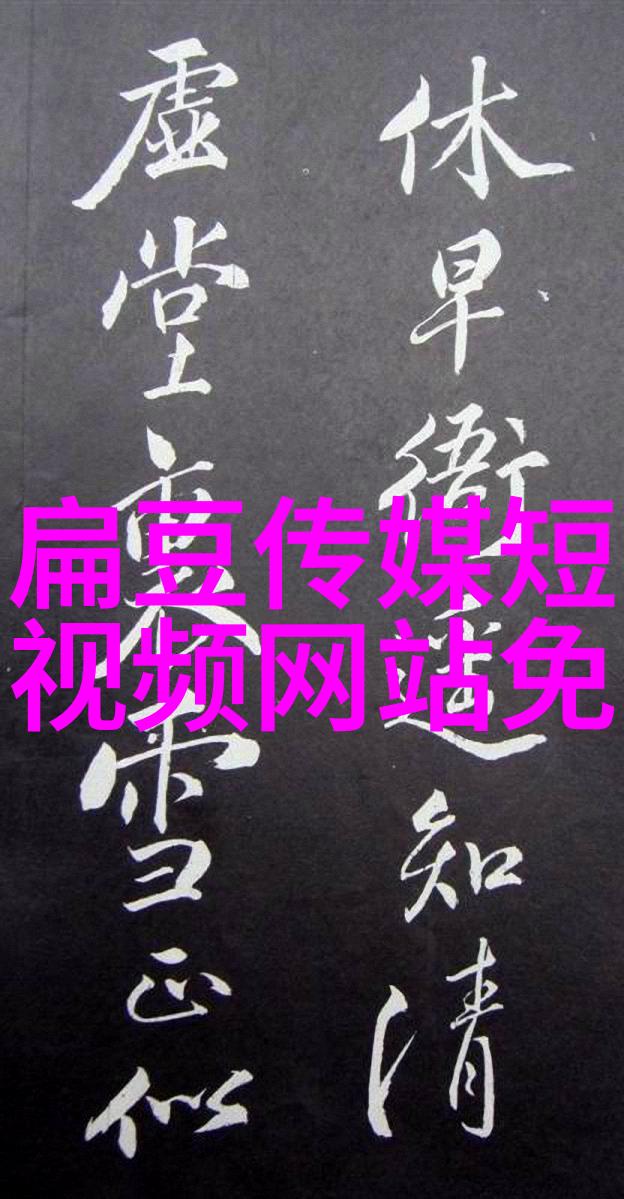 休早衙遥知清
虚堂裏雪正似
扁豆传媒短
视频网站免